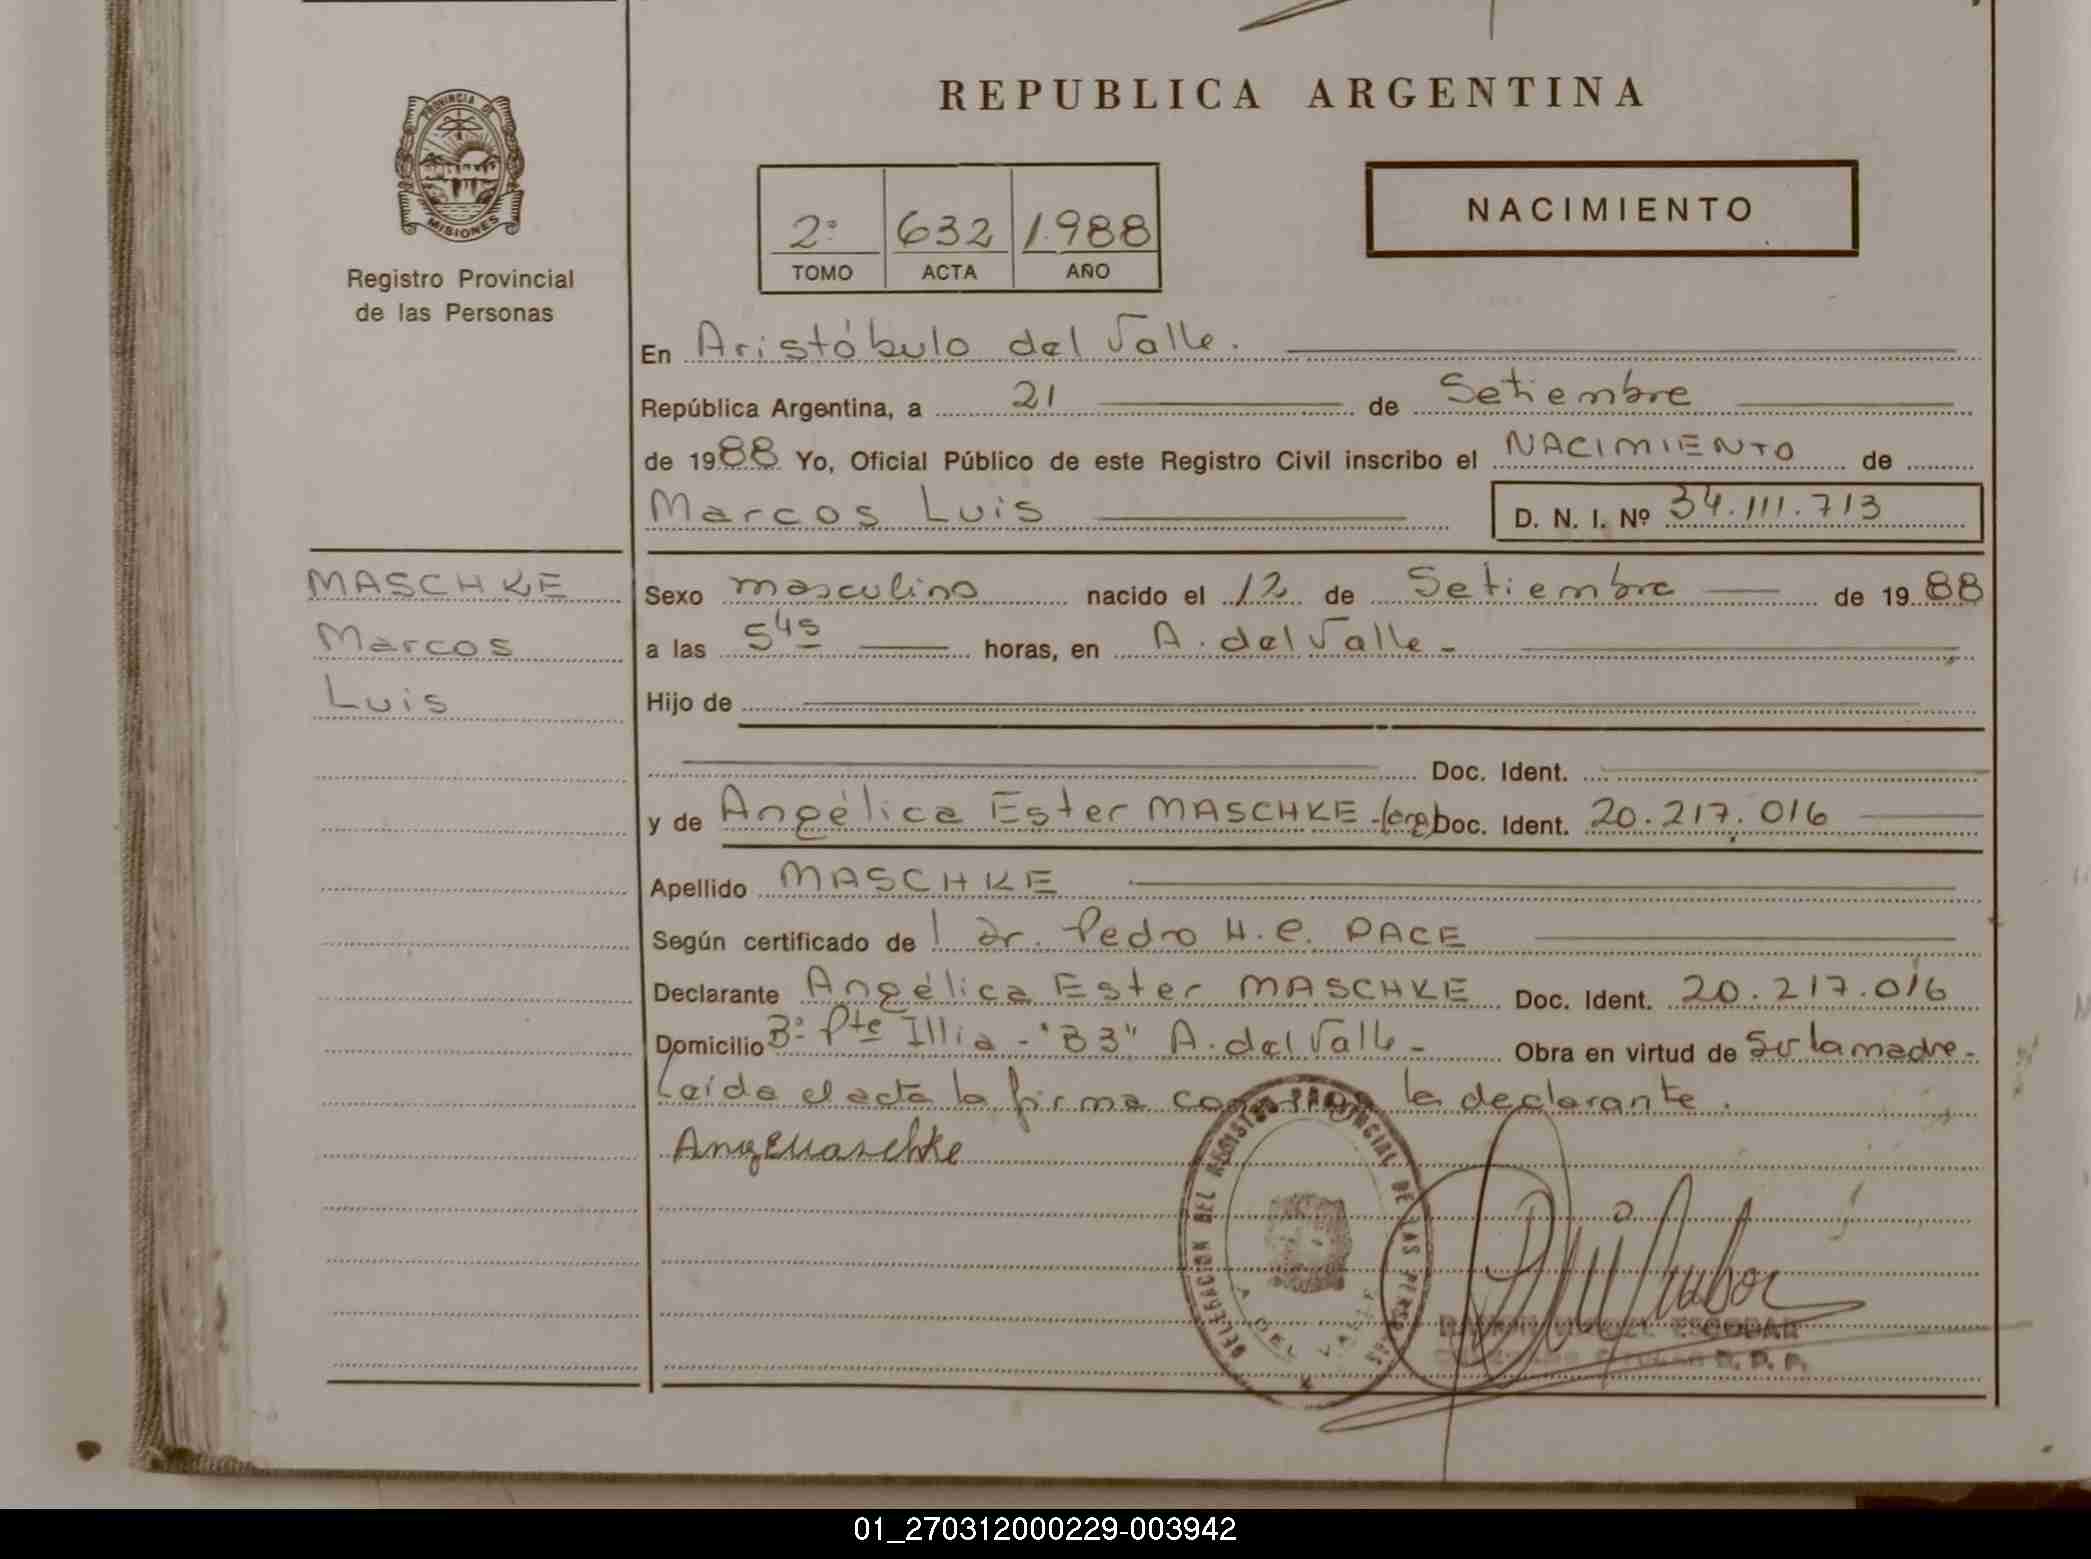 REPUBLICA ARGENTINA
PROVINCIA DE MISIONES
Registro Provincial
de las Personas
2º 632 1.988
TOMO ACTA AÑO
NACIMIENTO
En Aristóbulo del Valle.
República Argentina, a 21 de Setiembre
de 1988 Yo, Oficial Público de este Registro Civil inscribo el NACIMIENTO de
Marcos Luis D. N. I. Nº 34.111.713
MASCHKE
Marcos
Luis
Sexo masculino nacido el 12 de Setiembre de 1988
a las 5 45 horas, en A. del Valle -
Hijo de
Doc. Ident.
y de Angélica Ester MASCHKE -(arg) Doc. Ident. 20.217.016
Apellido MASCHKE
Según certificado de l Dr. Pedro H. C. PACE
Declarante Angélica Ester MASCHKE Doc. Ident. 20.217.016
Domicilio Bº Pte Illia - "B3" A. del Valle - Obra en virtud de Ser la madre -
Leída el acta la firma la declarante.
Ang EMaschke
DELEGACION DEL REGISTRO PROVINCIAL DE LAS PERSONAS
A. DEL VALLE
ESCOBAR
R. P. P.
01_270312000229-003942